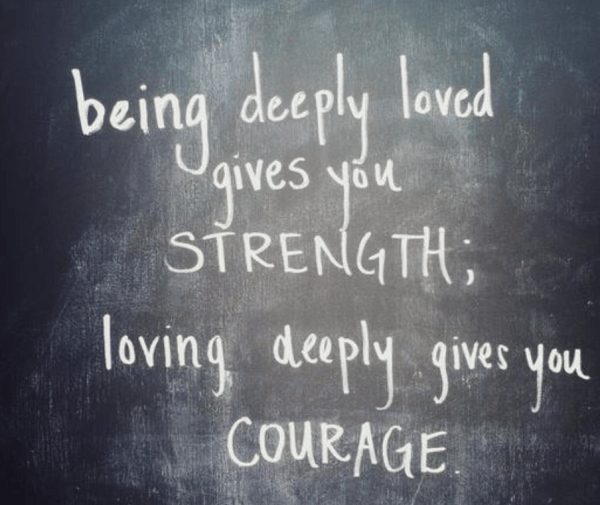 being deeply loved
gives you
STRENGTH;
loving deeply gives you
COURAGE.